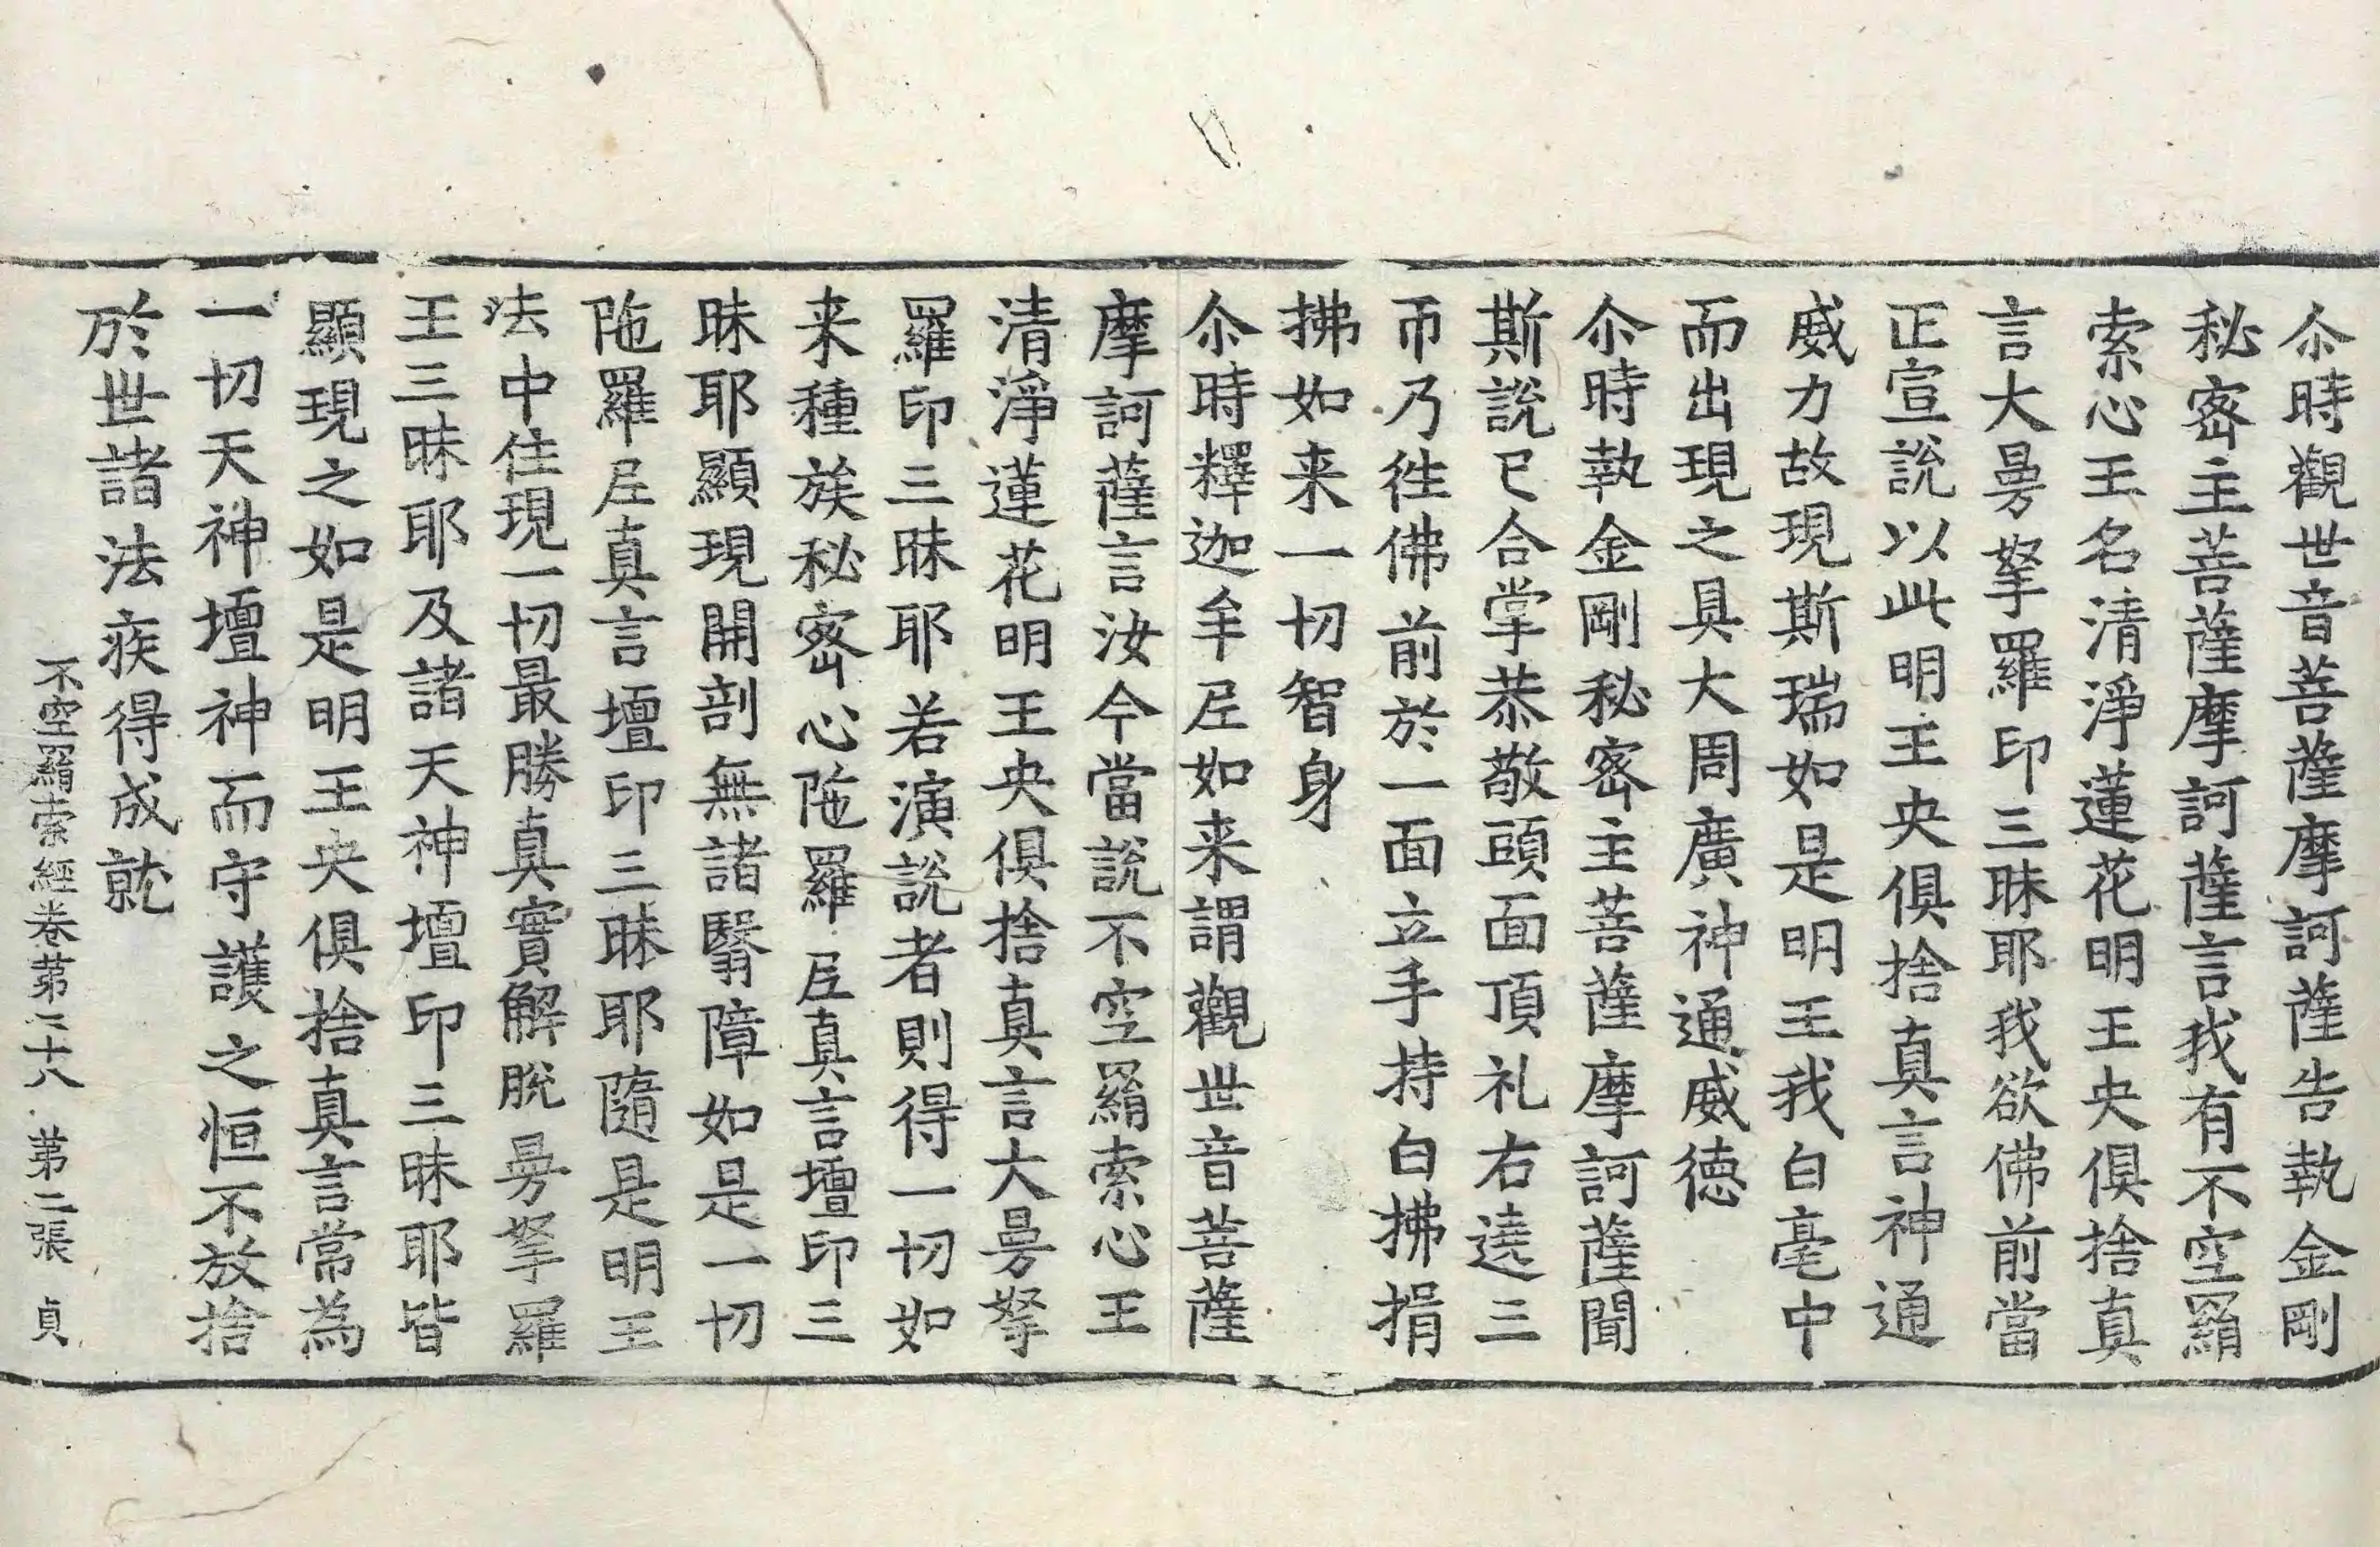 尒時觀世音菩薩摩訶薩告執金剛
秘密主菩薩摩訶薩言我有不空羂
索心王名清淨蓮花明王央俱捨真
言大曼拏羅印三昧耶我欲佛前當
正宣說以此明王央俱捨真言神通
威力故現斯瑞如是明王我白毫中
而出現之具大周廣神通威德
尒時執金剛秘密主菩薩摩訶薩聞
斯說已合掌恭敬頭面頂礼右遶三
帀乃徃佛前於一面立手持白拂捐
拂如来一切智身
尒時釋迦牟𡰱如来謂觀世音菩薩
摩訶薩言汝今當說不空羂索心王
清淨蓮花明王央俱捨真言大曼拏
羅印三昧耶若演說者則得一切如
来種族秘密心陁羅𡰱真言壇印三
昧耶顯現開剖無諸翳障如是一切
陁羅𡰱真言壇印三昧耶隨是明王
法中住現一切最勝真實解脫曼拏羅
王三昧耶及諸天神壇印三昧耶皆
顯現之如是明王央俱捨真言常為
一切天神壇神而守護之恒不放捨
於世諸法疾得成就
不空羂索經卷第二十八 第二張 貞